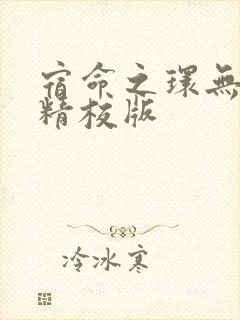 宿命之環無
精校版
冷冰寒